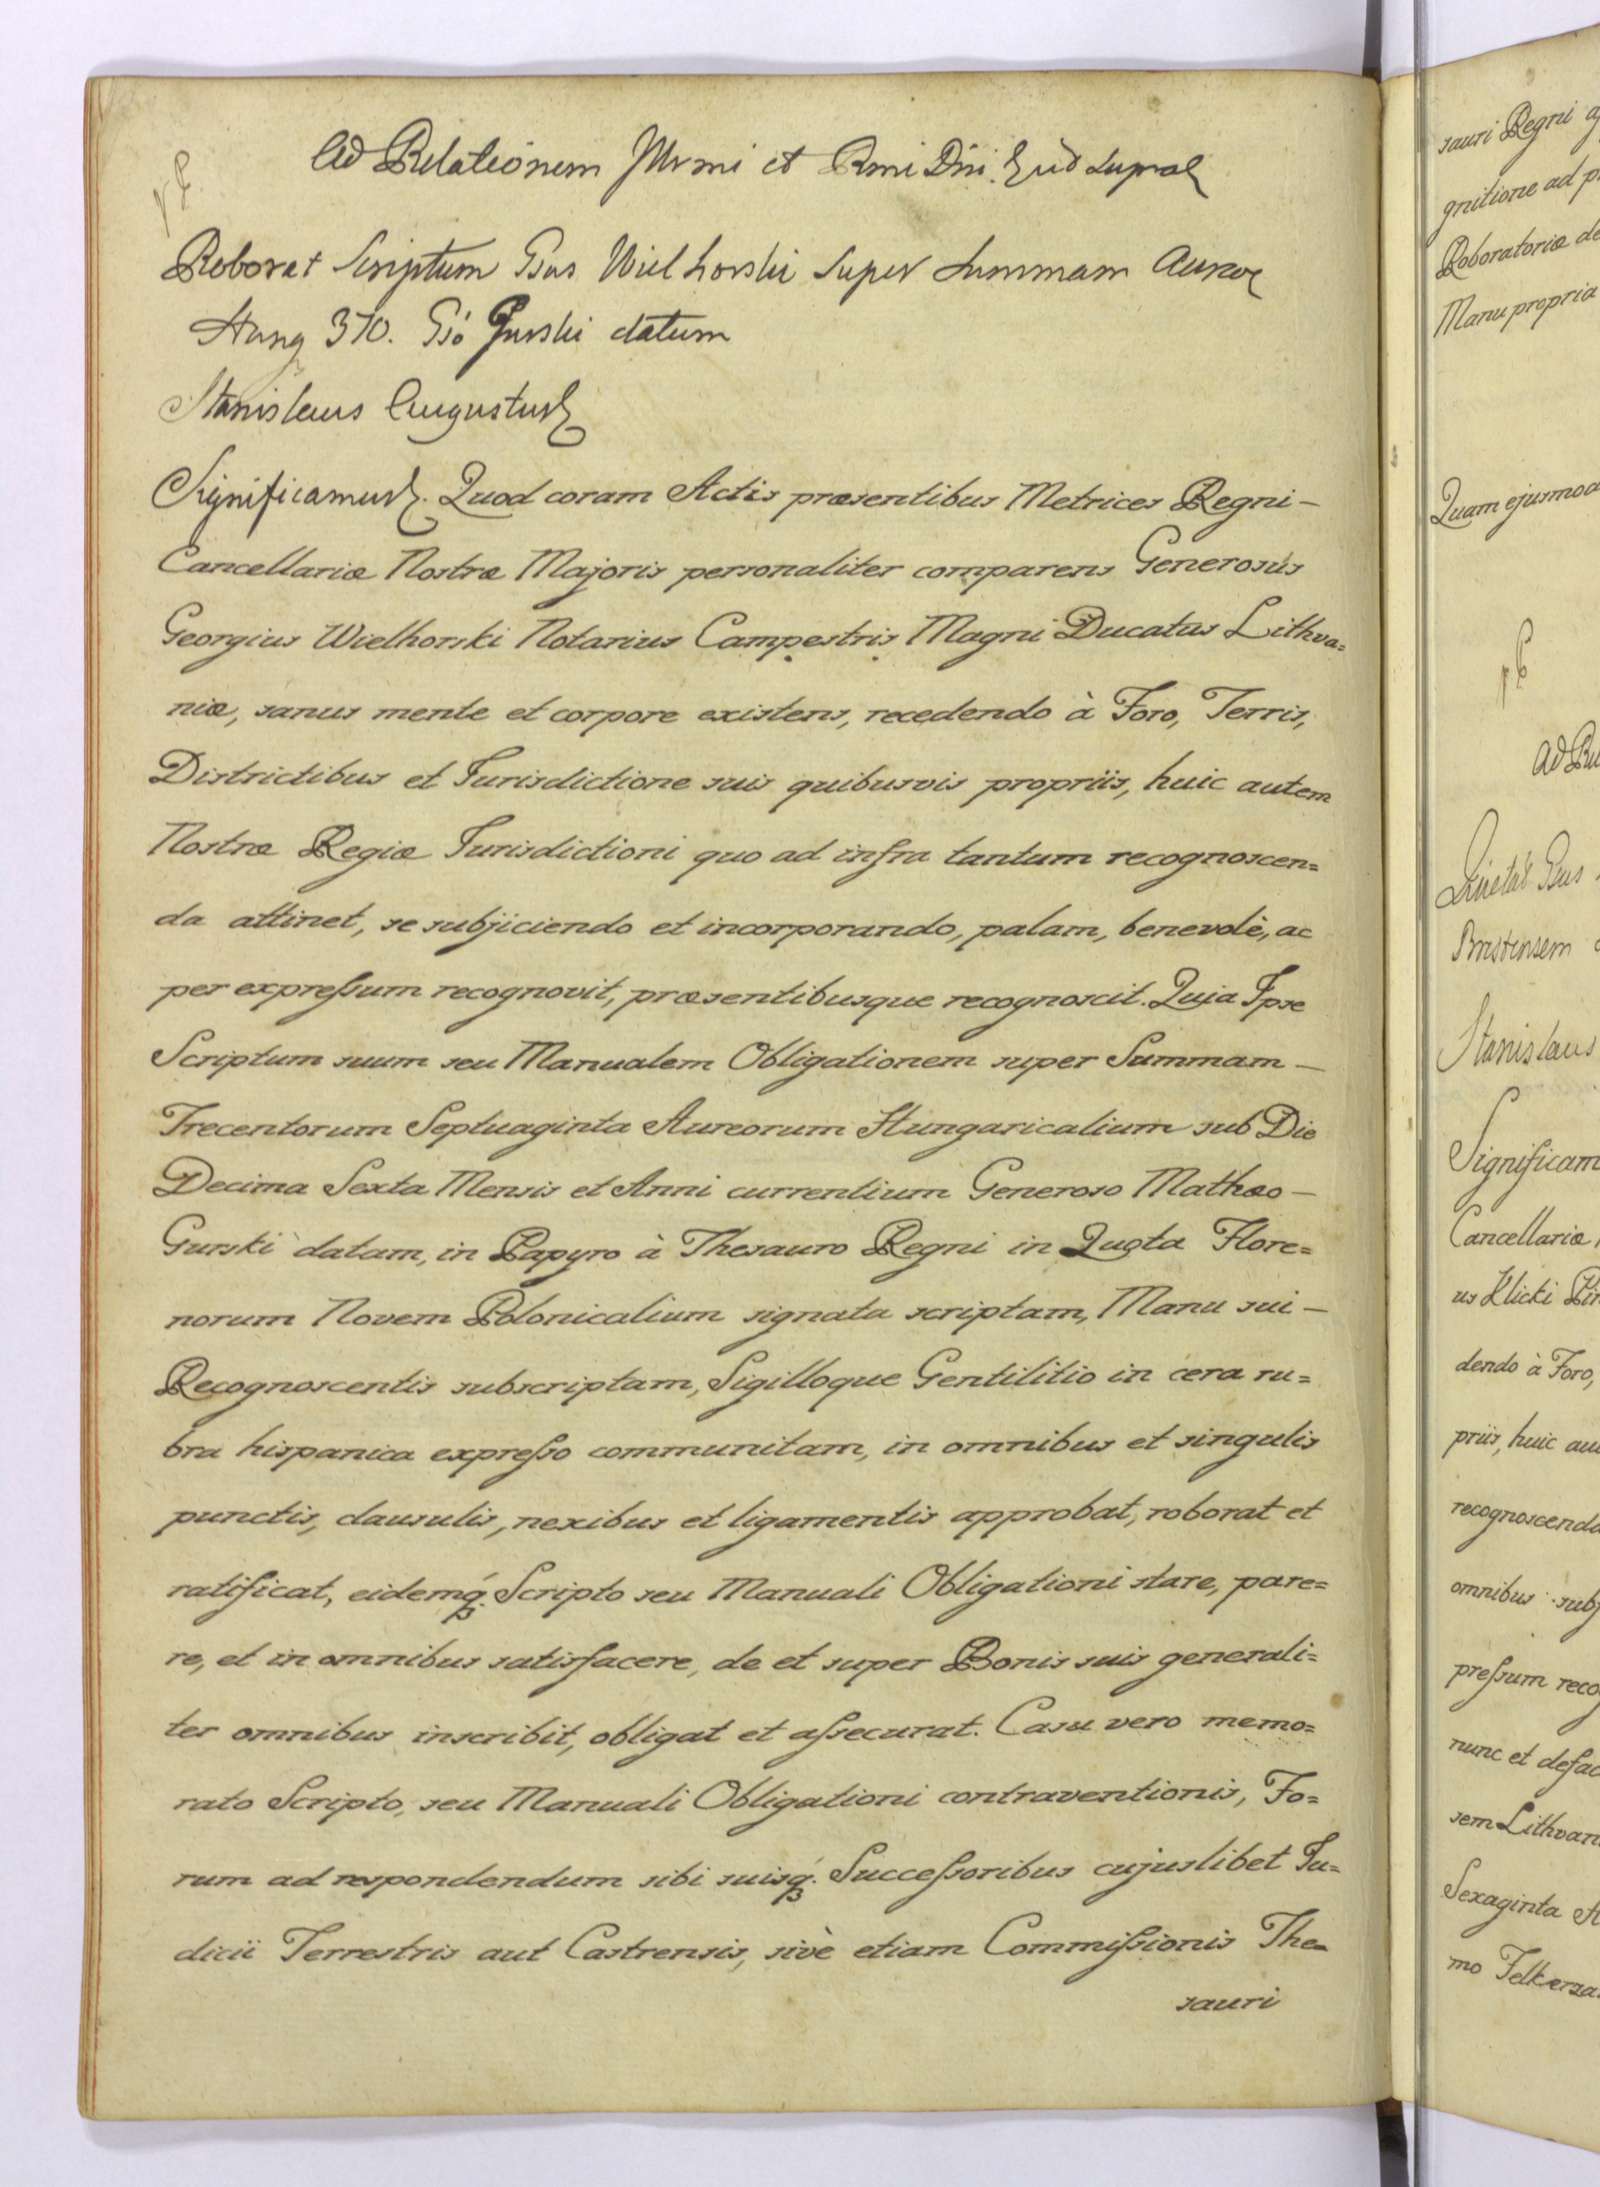 Ad Relationem Jllrmi et Rmi Dni. Eju'd supra
Roborat Scriptum Gsus Wielhorski super Summam Auror
Hung 370. Gso Gurski datum
Stanislaus Augustus
Significamus. Quod coram Actis præsentibus Metrices Regni –
Cancellariæ Nostræ Majoris personaliter comparens Generosús
Georgius Wielhorski Notarius Campestris Magni Ducatus Lithva=
niæ, sanus mente et corpore existens, recedendo à Foro, Terris,
Districtibus et Jurisdictione suis quibusvis propriis, huic autem
Nostræ Regiæ Jurisdictioni quo ad infra tantum recognoscen=
da attinet, se subjiciendo et incorporando, palam, benevolè, ac
per expreſsum recognovit, præsentibusque recognoscit. Quia Ipse
Scriptum suum seu Manualem Obligationem super Summam –
Trecentorum Septuaginta Aureorum Hungaricalium sub Die
Decima Sexta Mensis et Anni currentium Generoso Mathæo –
Gurski datam, in Papyro à Thesauro Regni in Quota Flore=
norum Novem Polonicalium signata scriptam, Manu sui –
Recognoscentis subscriptam, Sigilloque Gentilitio in cera ru=
bra hispanica expreſso communitam, in omnibus et singulis
punctis, clausulis, nexibus et ligamentis approbat, roborat et
ratificat, eidemq́. Scripto seu Manuali Obligationi stare, pare=
re, et in omnibus satisfacere, de et super Bonis suis generali=
ter omnibus inscribit, obligat et aſsecurat. Casu vero memo=
rato Scripto, seu Manuali Obligationi contraventionis, Fo=
rum ad respondendum sibi suisq́. Succeſsoribus cujuslibet Ju=
dicii Terrestris aut Castrensis, sivè etiam Commiſsionis The=
sauri
sauri Regni
gnitione ad
Roboratoriæ
Manu propria
Quam
Ad
Quietat Gsus
Stanislaus
Cancellariæ
us Klicki
dendo à Foro,
priis, huic
omnibus
preſsum
nunc et
Sexaginta
mo